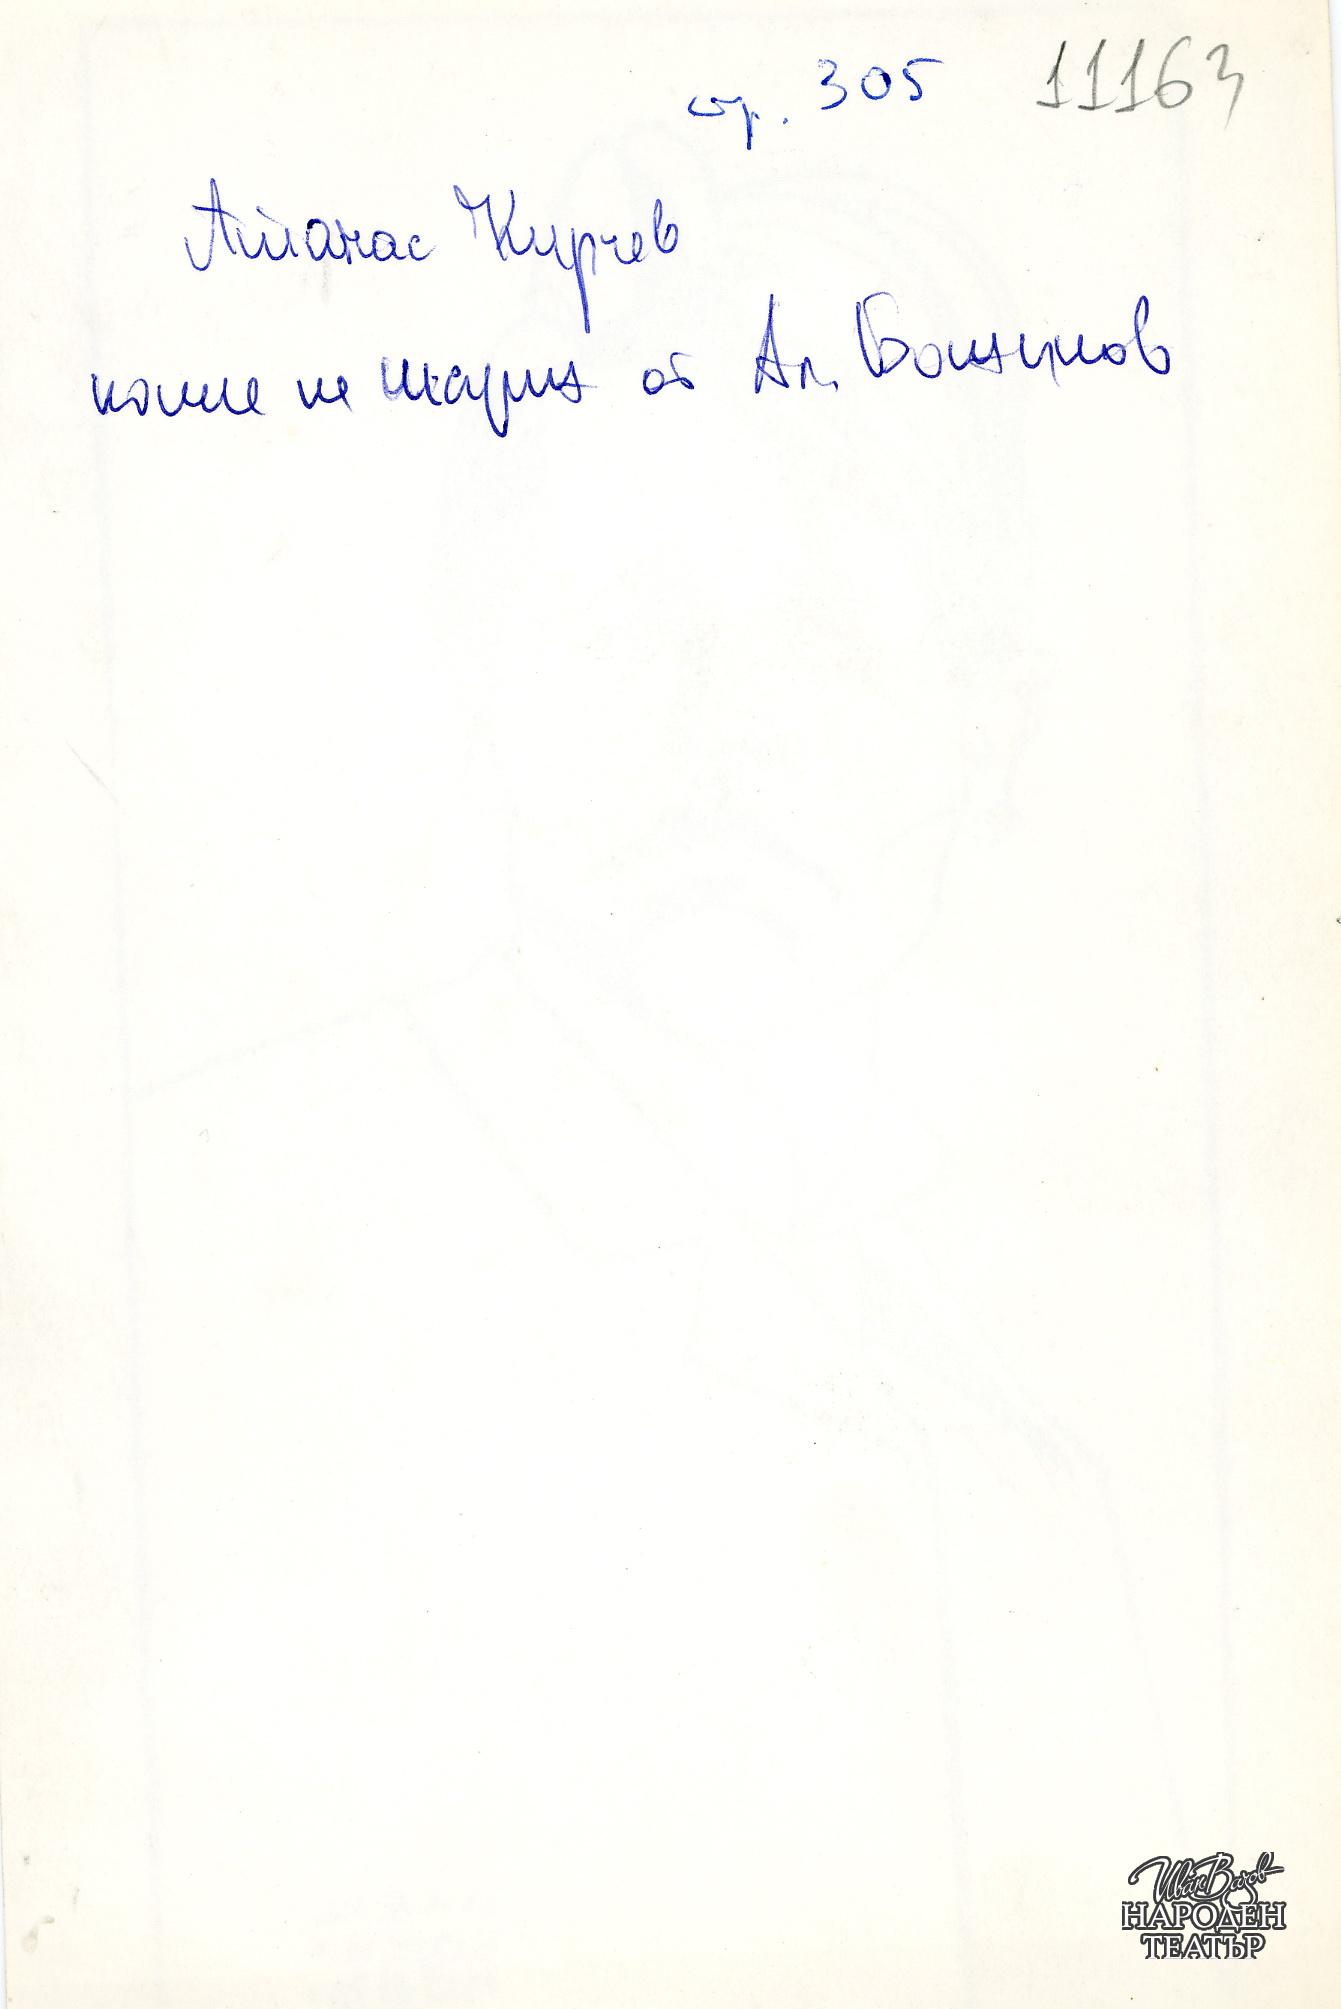 стр. 305 11163
Атанас Кирчев
копие на шарж от Ал. Божинов
Иван Вазов
НАРОДЕН
ТЕАТЪР